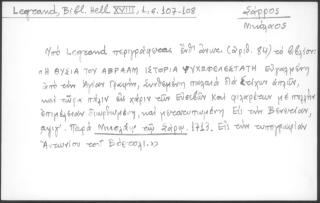 Legrand, Bibl. Hell XVIII, I, σ. 107-108
Σάρρος
Νικόλαος
Ὑπὸ Legrand περιγράφεται ἔνθ' ἄνωτ. (ἀριθ. 84) τὸ βιβλίον:
«Η ΘΥΣΙΑ ΤΟΥ ΑΒΡΑΑΜ ΙΣΤΟΡΙΑ ΨΥΧΩΦΕΛΕΣΤΑΤΗ Εὐγαλμένη
ἀπὸ τὴν Ἁγίαν Γραφήν, συνθεμένη παλαιὰ διὰ στίχων ἁπλῶν,
καὶ τῶρα πάλιν εἰς χάριν τῶν Εὐσεβῶν καὶ φιλαρέτων μὲ πολλὴν
ἐπιμέλειαν διωρθωμένη, καὶ μετατυπωμένη Εἰς τὴν Βενετίαν,
αψιγ´. Παρὰ Νικολάῳ τῷ Σάρῳ. 1713. Εἰς τὴν τυπογραφίαν
Ἀντωνίου τοῦ Βόρτολι.»